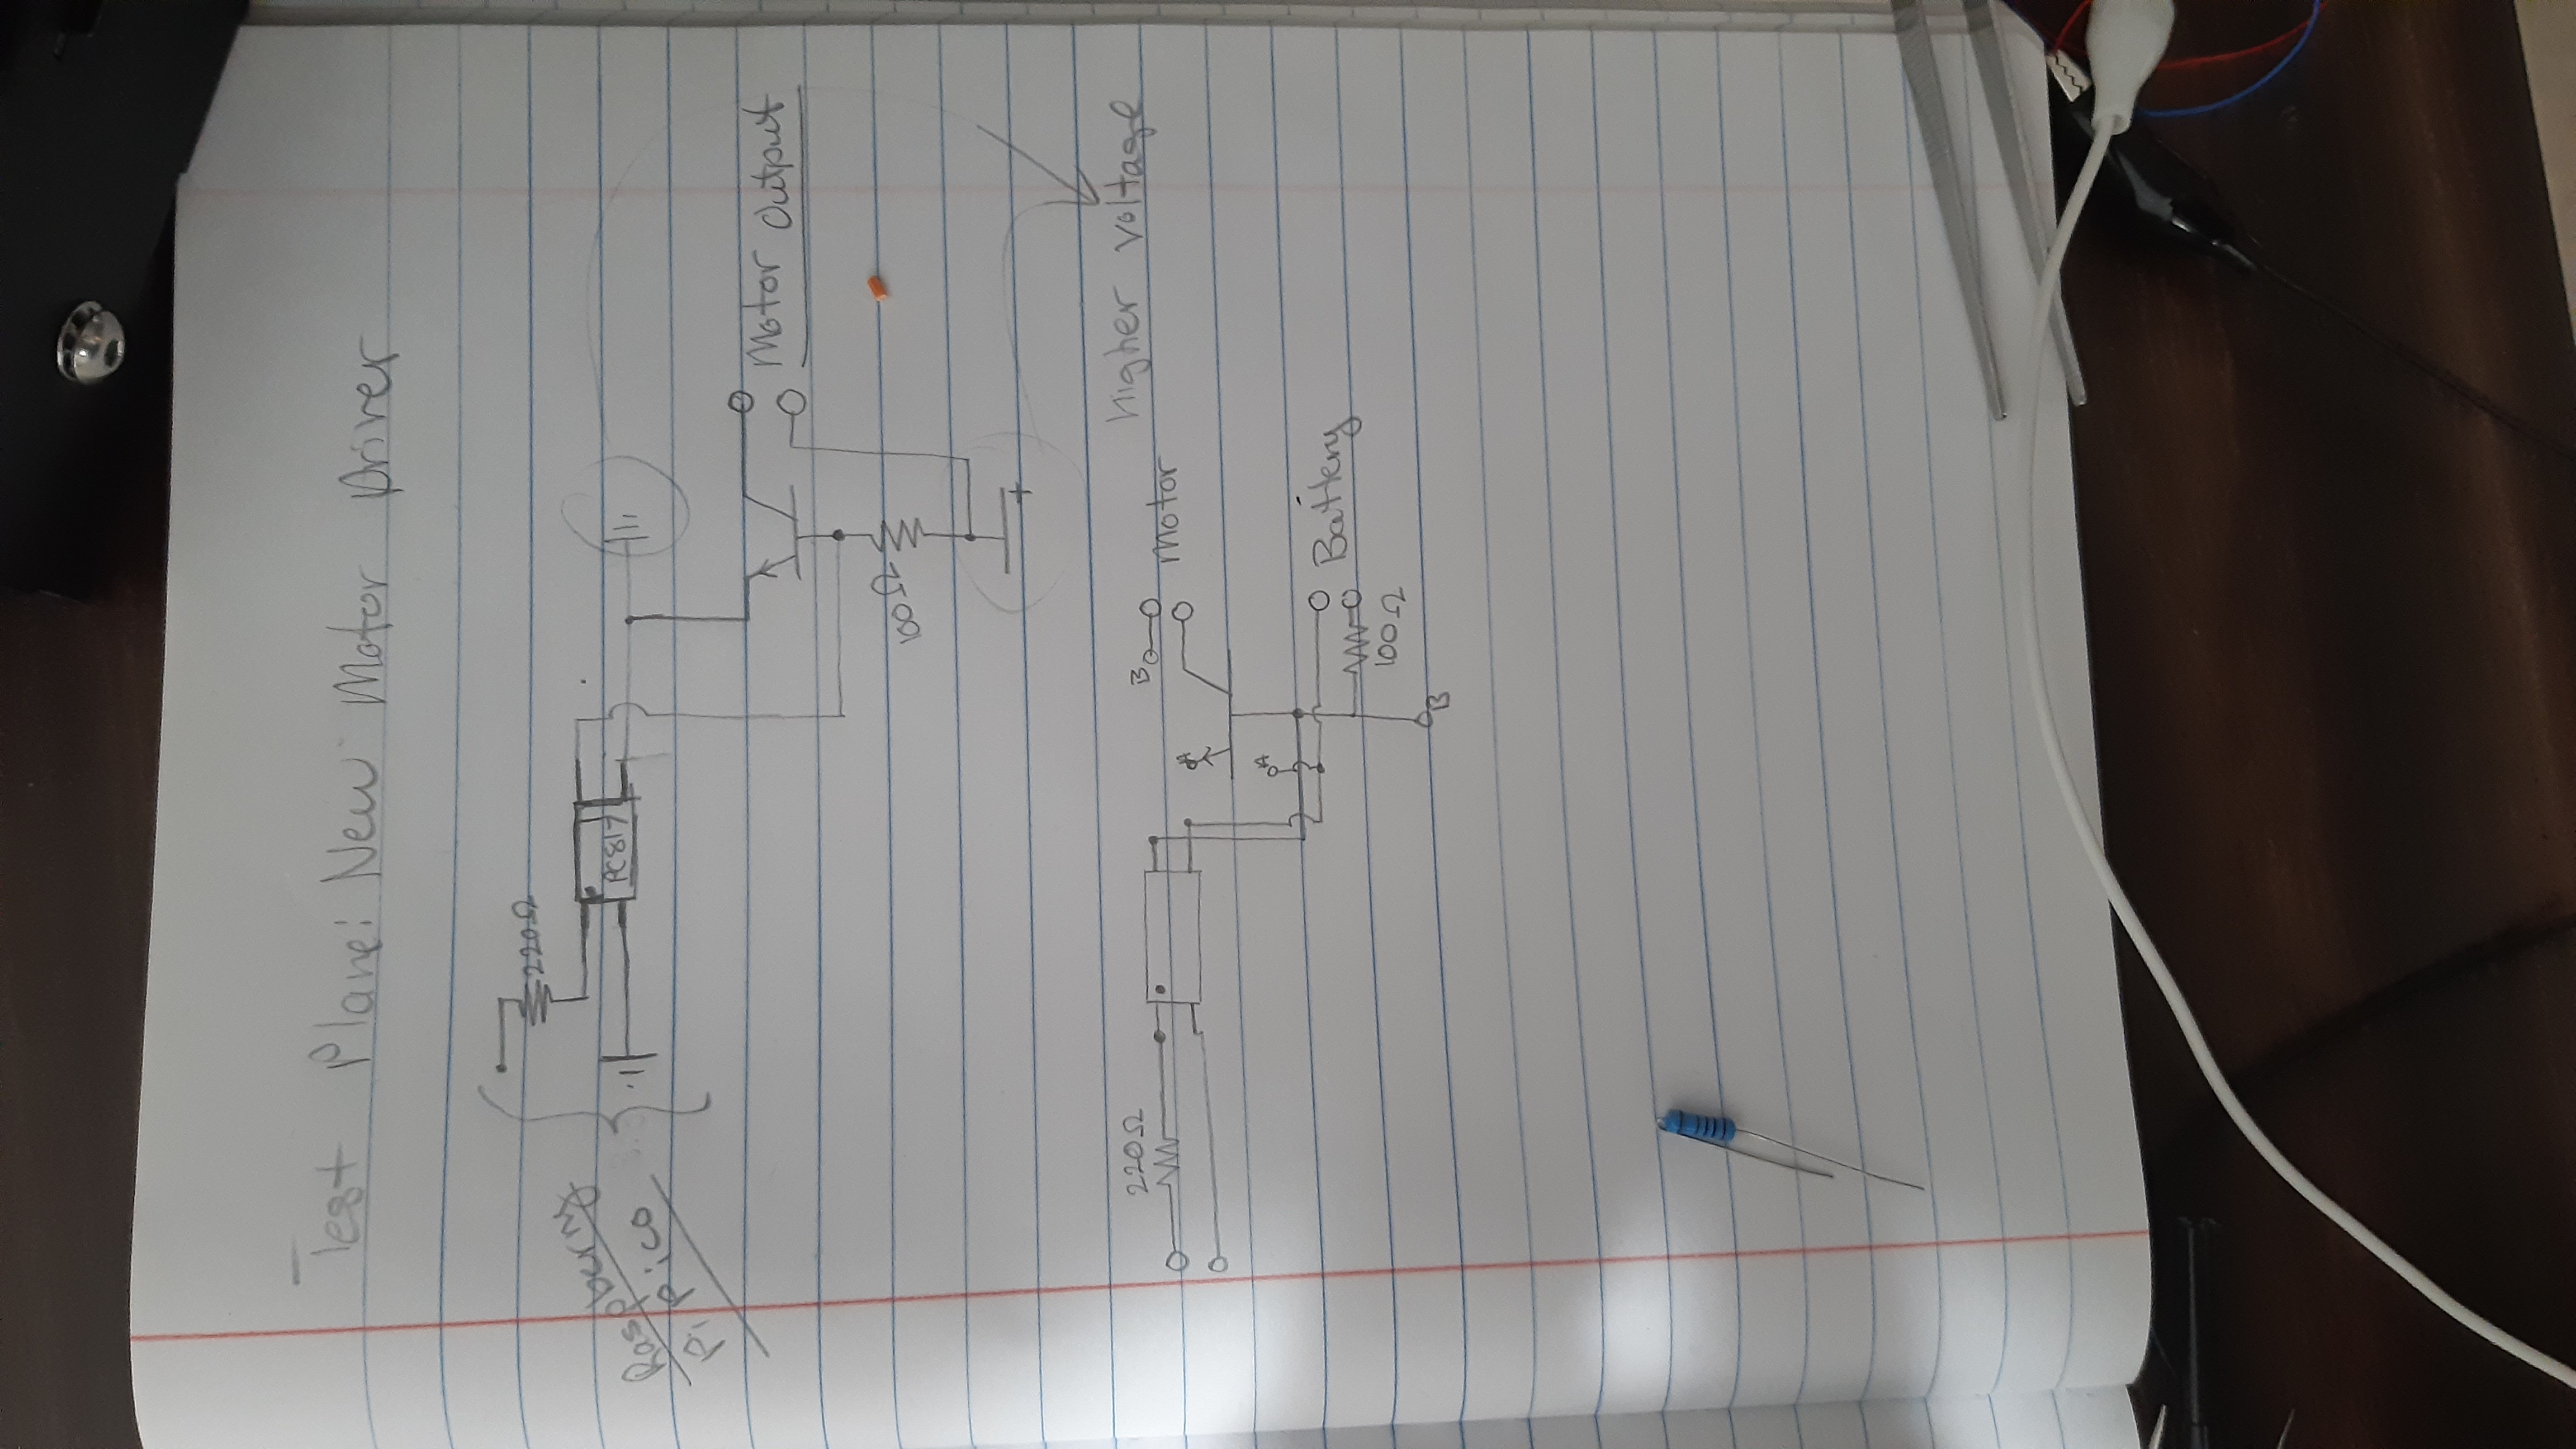 Test Plane: New Motor Driver
220Ω
Raspberry
Pi Pico
PC817
Motor Output
100Ω
+
higher voltage
220Ω
B
Motor
A
A
Battery
100Ω
B